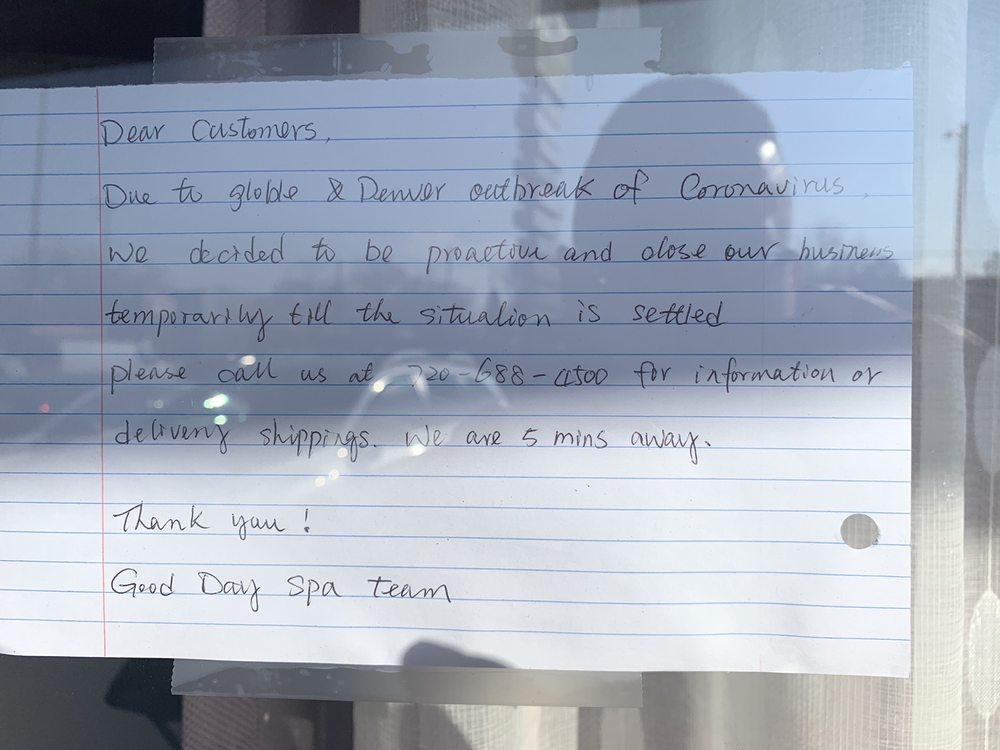 Dear Customers,
Due to globle & Denver outbreak of Coronavirus,
We decided to be proactive and close our business
temporarily till the situation is settled
please call us at 720-688-4500 for information or
delivery shippings. We are 5 mins away.
Thank you!
Good Day Spa team